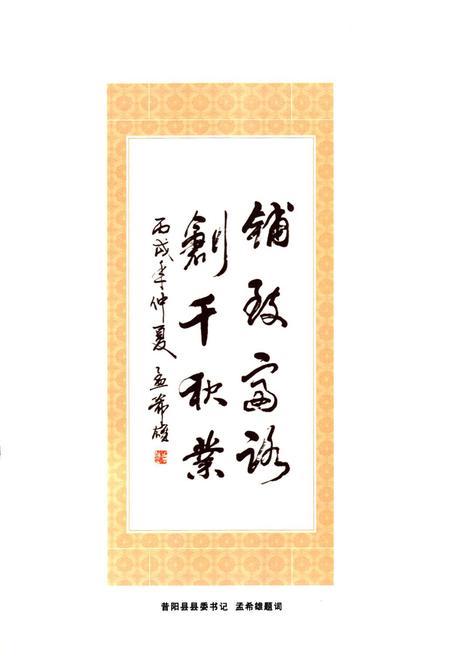 鋪致富路
創千秋業
丙戌年仲夏 孟希雄
昔阳县县委书记 孟希雄题词